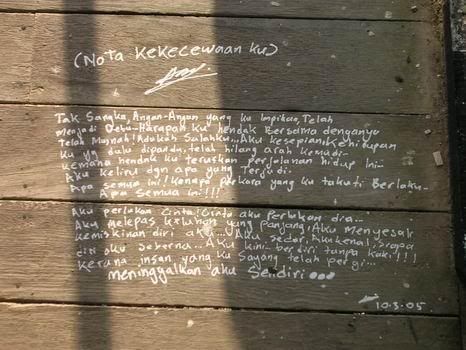 (Nota Kekecewaan ku)
Tak Sangka, Angan-Angan yang ku Impikan, Telah
menjadi Debu-Harapan ku hendak Bersama denganya
Telah Musnah! Adakah Salahku...Aku kesepian. Kehidupan
ku yg dulu dipandu, telah hilang arah kemudi-
kemana hendak ku teruskan perjalanan hidup ini-
Aku keliru dgn apa yang Terjadi-
Apa semua ini! Kenapa perkara yang ku takuti Berlaku-
Apa Semua ini!!!
Aku perlukan Cinta, Cinta aku perlukan dia--
Aku melepas keluhan yang panjang, Aku menyesal
kemiskinan diri aku... Aku sedar, Aku kenal, Siapa
diri aku Sekarna.. Aku kini.. berdiri tanpa kaki!!!
kerana insan yang ku Sayang telah pergi...
meninggalkan aku Sendiri...
10.3.05